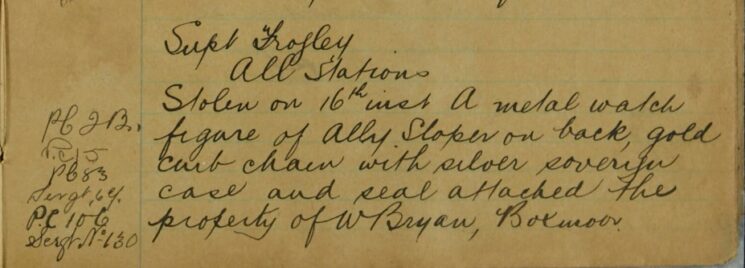 Supt Frogley
All Stations
Stolen on 16th inst A metal watch
figure of Ally Sloper on back, gold
curb chain with silver soverign
case and seal attached the
property of W Bryan, Boxmoor.
P.C. 15
PC 83
Sergt, 64.
P.C 106
Sergt No 130